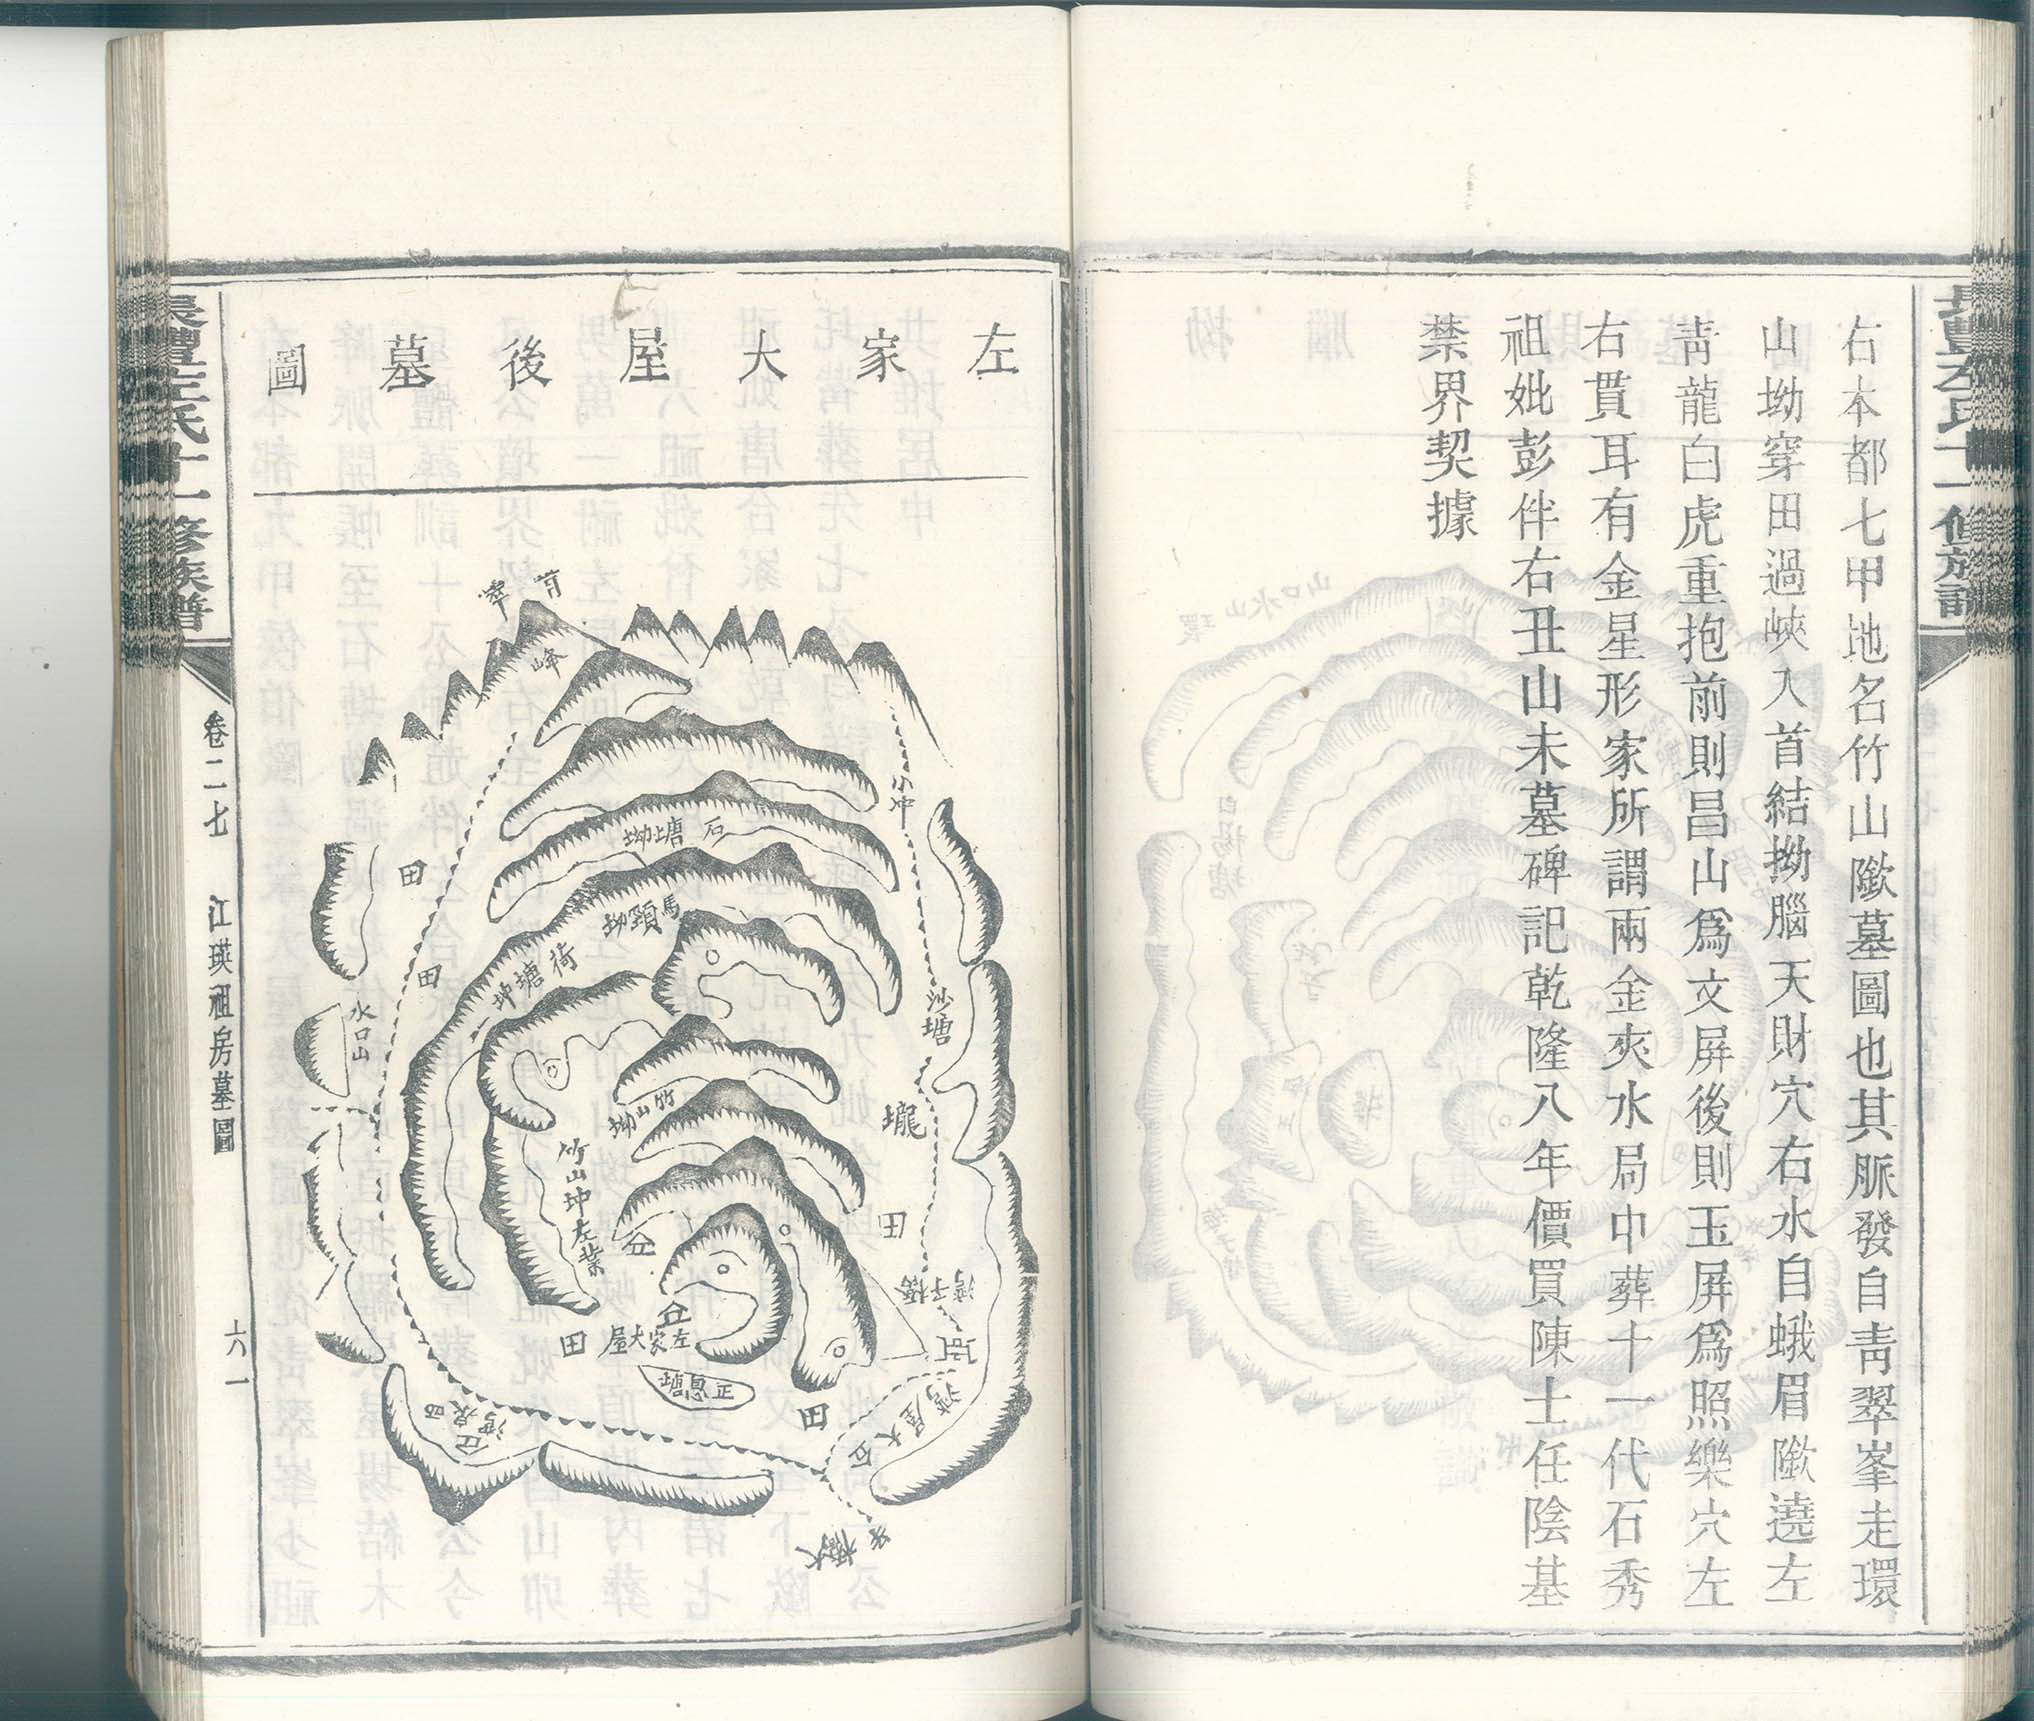 右本都七甲地名竹山隞墓圖也其脈發自靑翠峯走環
山坳穿田過峽入首結拗腦天財穴右水自蛾眉隞遶左
靑龍白虎重抱前則昌山爲文屛後則玉屛爲照樂穴左
右貫耳有金星形家所謂兩金夾水局中葬十一代石秀
祖妣彭伴右丑山未墓碑記乾隆八年價買陳士任陰基
禁界契據
左家大屋後墓圖
靑翠峰
小冲
石塘坳
田
馬頸坳
荷塘坤
田
沙塘
水口山
壠
竹山坳
竹山坤左業
田
仚
橋子灣
仚
左家大屋
田
正息塘
田
石大屋灣
大橋
卷二七
江瑛祖房墓圖
六一
左氏十一修族譜